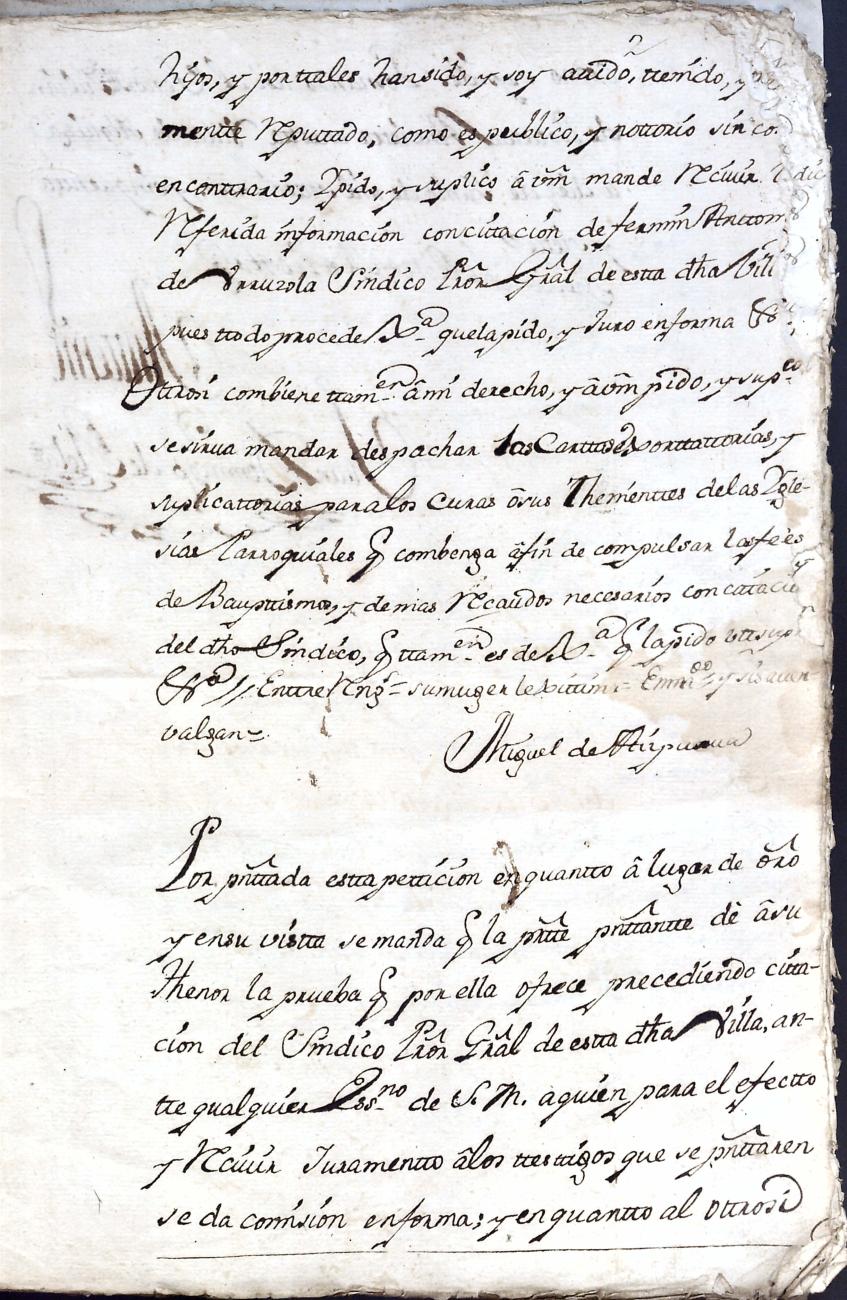 hijos, y por ttales han sido, y soy auido, ttenido, y
mentte Reputtado, como es publico, y nottorio sin co
en conttrario; Pido, y suplico â Vm mande Rciuir
Referida informacion con cittacion de fermin Anttonio
de Vrruzola Sindico Pror Gral de estta dha Villa
pues ttodo procede Xa que la pido, y Juro en forma &a
Ottrosi combiene ttamen â mi derecho, y â Vm pido, y supco
se sirua mandar despachar las Carttas exorttattorias, y
suplicattorias para los Curas ô sus Thenienttes de las Ygle-
sias Parroquiales q combenga â fin de compulsar las fées
de Bauptismos, y demas Rcaudos necesarios con cittacion
del dho Sindico, q ttamen es de Xa q la pido vtt supa
&a // Enttre Rngs su muger lexitima = Emmdo y
valgan =
Miguel de Aizpurua
Por pnttada estta petticion en quantto â lugar de dro
y en su vistta se manda q la partte pnttantte dê â su
thenor la prueba q por ella ofrece precediendo citta-
cion del Sindico Pror Gral de estta dha Villa, an-
tte qualquier Essno de S. M. a quien para el efectto
y Rciuir Juramentto â los ttesttigos que se pnttaren
se da comision en forma; y en quantto al ottrosi